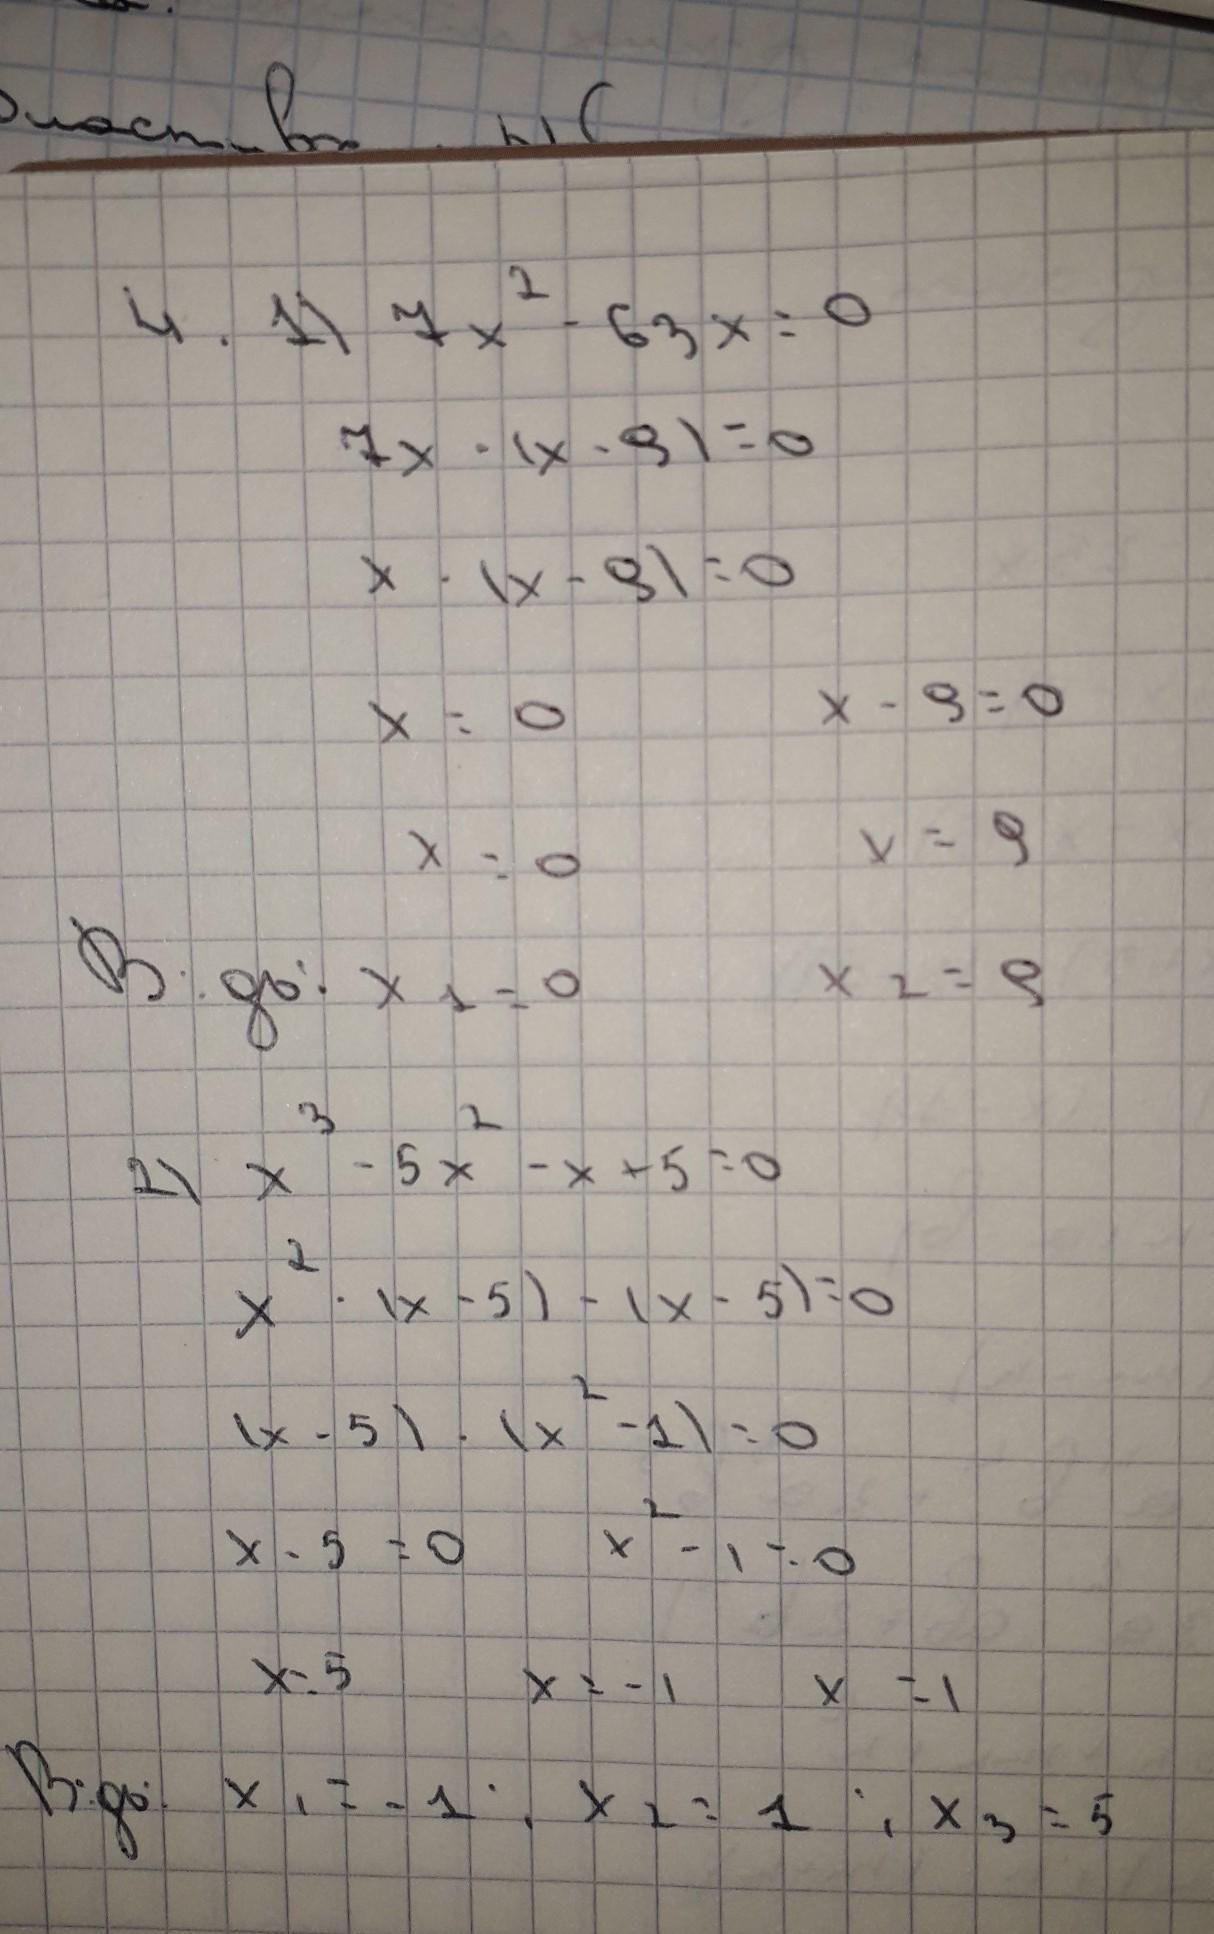 4. 1) 7x² - 63x = 0
7x · (x - 9) = 0
x · (x - 9) = 0
x = 0 x - 9 = 0
x = 0 x = 9
В:дь: x₁ = 0 x₂ = 9
2) x³ - 5x² - x + 5 = 0
x² · (x - 5) - (x - 5) = 0
(x - 5) · (x² - 1) = 0
x - 5 = 0 x² - 1 = 0
x = 5 x = -1 x = 1
В:дь: x₁ = -1 ; x₂ = 1 ; x₃ = 5